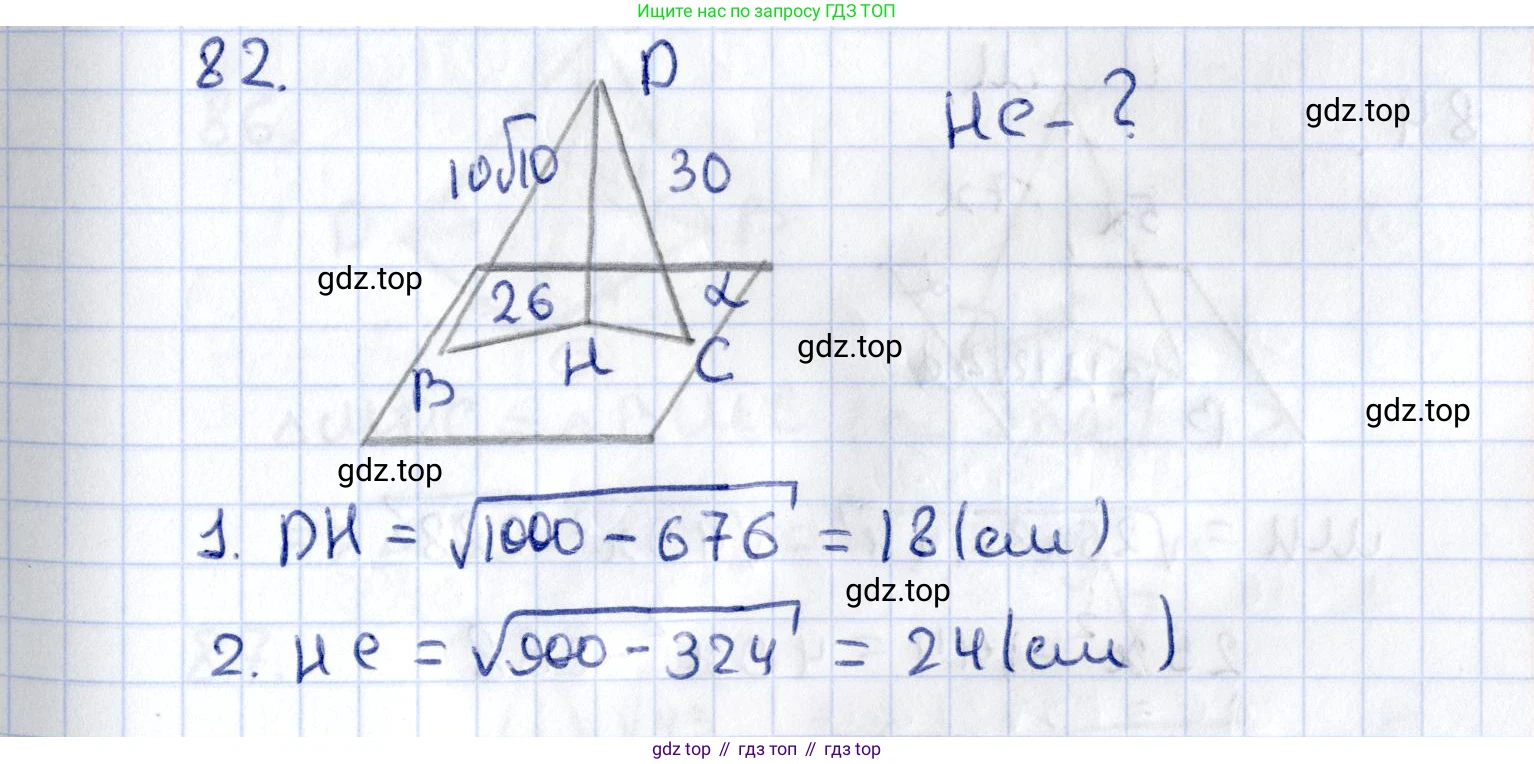 Ищите нас по запросу ГДЗ ТОП
82.
D
HC - ?
gdz.top
10√10
30
gdz.top
26
α
gdz.top
B
H
C
gdz.top
gdz.top
1. DH = √1000 - 676 = 18 (см)
gdz.top
2. HC = √900 - 324 = 24 (см)
gdz top // гдз топ // gdz top